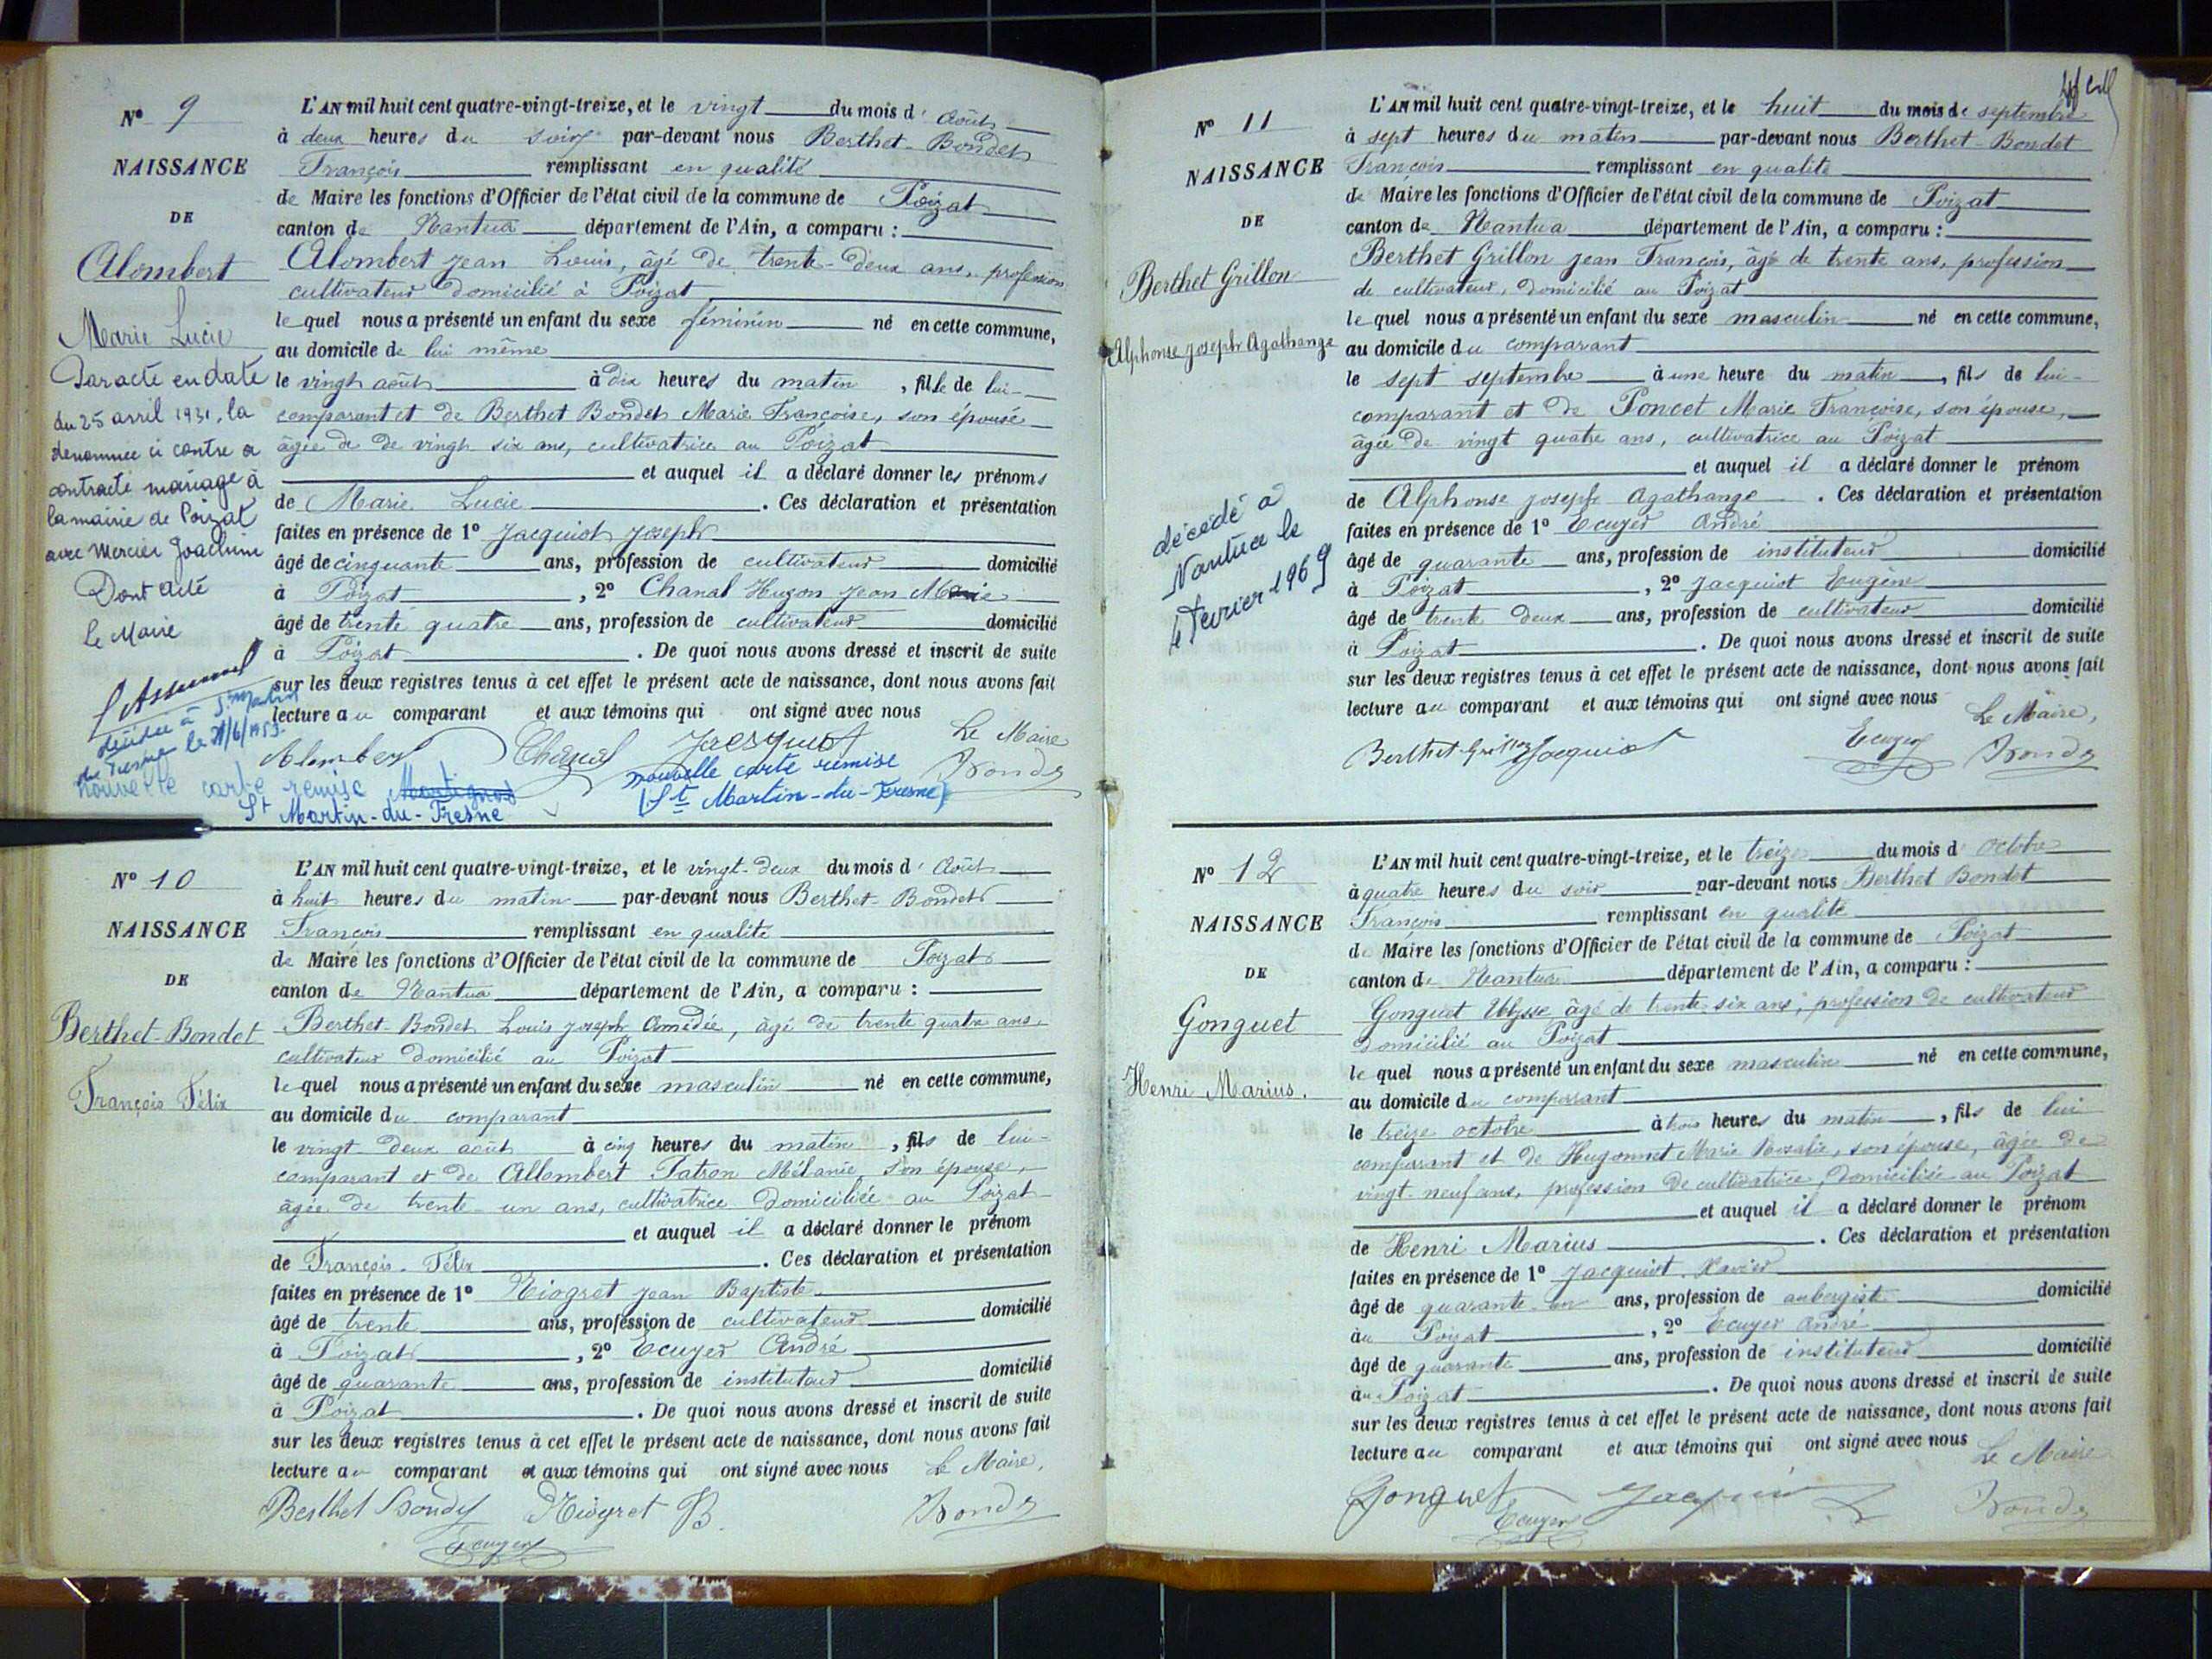 N° 9
NAISSANCE
DE
Alombert
Marie Lucie
Par acte en date
du 25 avril 1931, la
denommée ci contre a
contracté mariage à
la mairie de Poizat
avec Mercier Joachim
Dont acte
le Maire
décédée à St Martin
du Fresne le 21/6/1953.
nouvelle carte remise
St Martin-du-Fresne
L'AN mil huit cent quatre-vingt-treize, et le vingt du mois d' Août
à deux heures du soir par-devant nous Berthet-Bondet
François remplissant en qualité
de Maire les fonctions d'Officier de l'état civil de la commune de Poizat
canton de Nantua département de l'Ain, a comparu :
Alombert Jean Louis, âgé de trente-deux ans, profession
cultivateur domicilié à Poizat
lequel nous a présenté un enfant du sexe féminin né en cette commune,
au domicile de lui même
le vingt août à dix heures du matin, fille de lui-
comparant et de Berthet Bondet Marie Françoise, son épouse
âgée de de vingt six ans, cultivatrice au Poizat
et auquel il a déclaré donner les prénoms
de Marie Lucie. Ces déclaration et présentation
faites en présence de 1° Jacquiot Joseph
âgé de cinquante ans, profession de cultivateur domicilié
à Poizat, 2° Chanal Hugon Jean Marie
âgé de trente quatre ans, profession de cultivateur domicilié
à Poizat. De quoi nous avons dressé et inscrit de suite
sur les deux registres tenus à cet effet le présent acte de naissance, dont nous avons fait
lecture au comparant et aux témoins qui ont signé avec nous Le Maire
Alombert Chanal Jacquiot Bondet
nouvelle carte remise
(St Martin-du-Fresne)
N° 10
NAISSANCE
DE
Berthet-Bondet
François Félix
L'AN mil huit cent quatre-vingt-treize, et le vingt-deux du mois d' Août
à huit heures du matin par-devant nous Berthet-Bondet
François remplissant en qualité
de Maire les fonctions d'Officier de l'état civil de la commune de Poizat
canton de Nantua département de l'Ain, a comparu :
Berthet-Bondet Louis Joseph Amédée, âgé de trente quatre ans,
cultivateur domicilié au Poizat
lequel nous a présenté un enfant du sexe masculin né en cette commune,
au domicile du comparant
le vingt-deux août à cinq heures du matin, fils de lui-
comparant et de Allombert Patron Mélanie son épouse,
âgée de trente-un ans, cultivatrice domiciliée au Poizat
et auquel il a déclaré donner le prénom
de François-Félix. Ces déclaration et présentation
faites en présence de 1° Niogret Jean Baptiste
âgé de trente ans, profession de cultivateur domicilié
à Poizat, 2° Ecuyer André
âgé de quarante ans, profession de instituteur domicilié
à Poizat. De quoi nous avons dressé et inscrit de suite
sur les deux registres tenus à cet effet le présent acte de naissance, dont nous avons fait
lecture au comparant et aux témoins qui ont signé avec nous Le Maire,
Berthet Bondet Niogret B. Bondet
Ecuyer
N° 11
NAISSANCE
DE
Berthet Grillon
Alphonse Joseph Agathange
décédé à
Nantua le
4 Fevrier 1969
L'AN mil huit cent quatre-vingt-treize, et le huit du mois de septembre
à sept heures du matin par-devant nous Berthet-Bondet
François remplissant en qualité
de Maire les fonctions d'Officier de l'état civil de la commune de Poizat
canton de Nantua département de l'Ain, a comparu :
Berthet Grillon Jean François, âgé de trente ans, profession
de cultivateur, domicilié au Poizat
lequel nous a présenté un enfant du sexe masculin né en cette commune,
au domicile du comparant
le sept septembre à une heure du matin, fils de lui-
comparant et de Poncet Marie Françoise, son épouse,
âgée de vingt quatre ans, cultivatrice au Poizat
et auquel il a déclaré donner le prénom
de Alphonse Joseph Agathange. Ces déclaration et présentation
faites en présence de 1° Ecuyer André
âgé de quarante ans, profession de instituteur domicilié
à Poizat, 2° Jacquiot Eugène
âgé de trente deux ans, profession de cultivateur domicilié
à Poizat. De quoi nous avons dressé et inscrit de suite
sur les deux registres tenus à cet effet le présent acte de naissance, dont nous avons fait
lecture au comparant et aux témoins qui ont signé avec nous Le Maire,
Berthet Grillon Jacquiot Ecuyer Bondet
N° 12
NAISSANCE
DE
Gonguet
Henri Marius.
L'AN mil huit cent quatre-vingt-treize, et le treize du mois d' Octobre
à quatre heures du soir par-devant nous Berthet Bondet
François remplissant en qualité
de Maire les fonctions d'Officier de l'état civil de la commune de Poizat
canton de Nantua département de l'Ain, a comparu :
Gonguet Ulysse âgé de trente-six ans, profession de cultivateur
domicilié au Poizat
lequel nous a présenté un enfant du sexe masculin né en cette commune,
au domicile du comparant
le treize octobre à trois heures du matin, fils de lui
comparant et de Hugonnet Marie Rosalie, son épouse, âgée de
vingt-neuf ans, profession de cultivatrice, domiciliée au Poizat
et auquel il a déclaré donner le prénom
de Henri Marius. Ces déclaration et présentation
faites en présence de 1° Jacquiot Xavier
âgé de quarante-un ans, profession de aubergiste domicilié
au Poizat, 2° Ecuyer André
âgé de quarante ans, profession de instituteur domicilié
au Poizat. De quoi nous avons dressé et inscrit de suite
sur les deux registres tenus à cet effet le présent acte de naissance, dont nous avons fait
lecture au comparant et aux témoins qui ont signé avec nous Le Maire
Gonguet Ecuyer Jacquiot Bondet